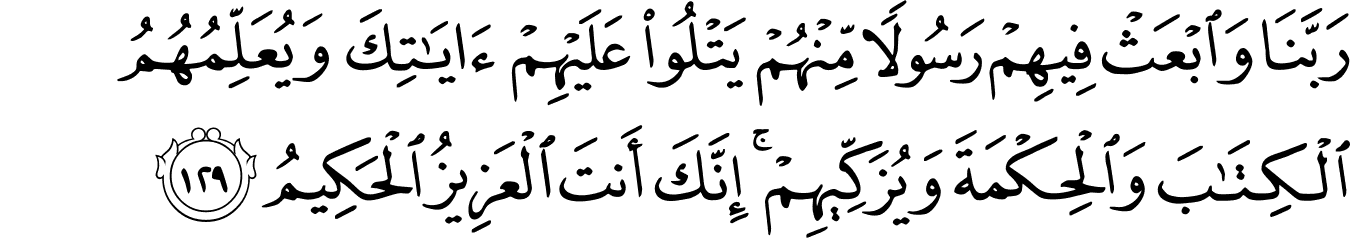 رَبَّنَا وَٱبْعَثْ فِيهِمْ رَسُولًا مِّنْهُمْ يَتْلُوا۟ عَلَيْهِمْ ءَايَـٰتِكَ وَيُعَلِّمُهُمُ
ٱلْكِتَـٰبَ وَٱلْحِكْمَةَ وَيُزَكِّيهِمْ ۚ إِنَّكَ أَنتَ ٱلْعَزِيزُ ٱلْحَكِيمُ ١٢٩